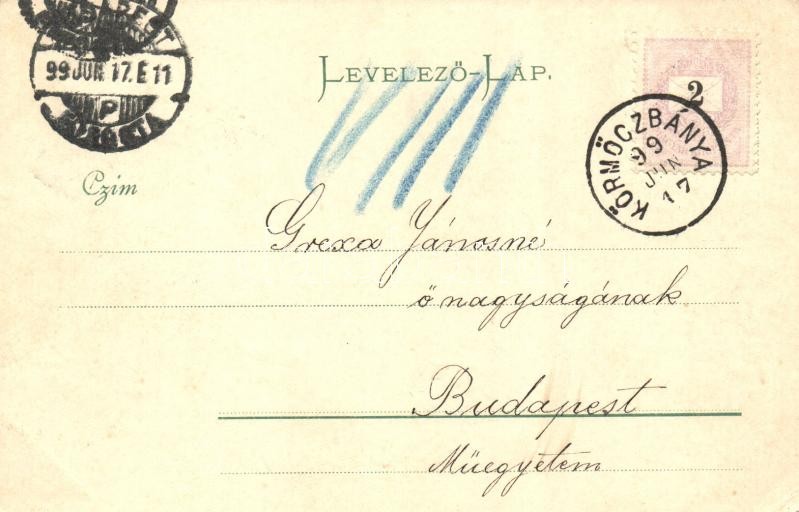 BUDAPEST
99 JUN. 17. E 11
P
LEVELEZŐ-LAP.
2
KÖRMÖCZBÁNYA
99
JUN
17
VIII
Czim
Grexa Jánosné
ő nagyságának
Budapest
Műegyetem